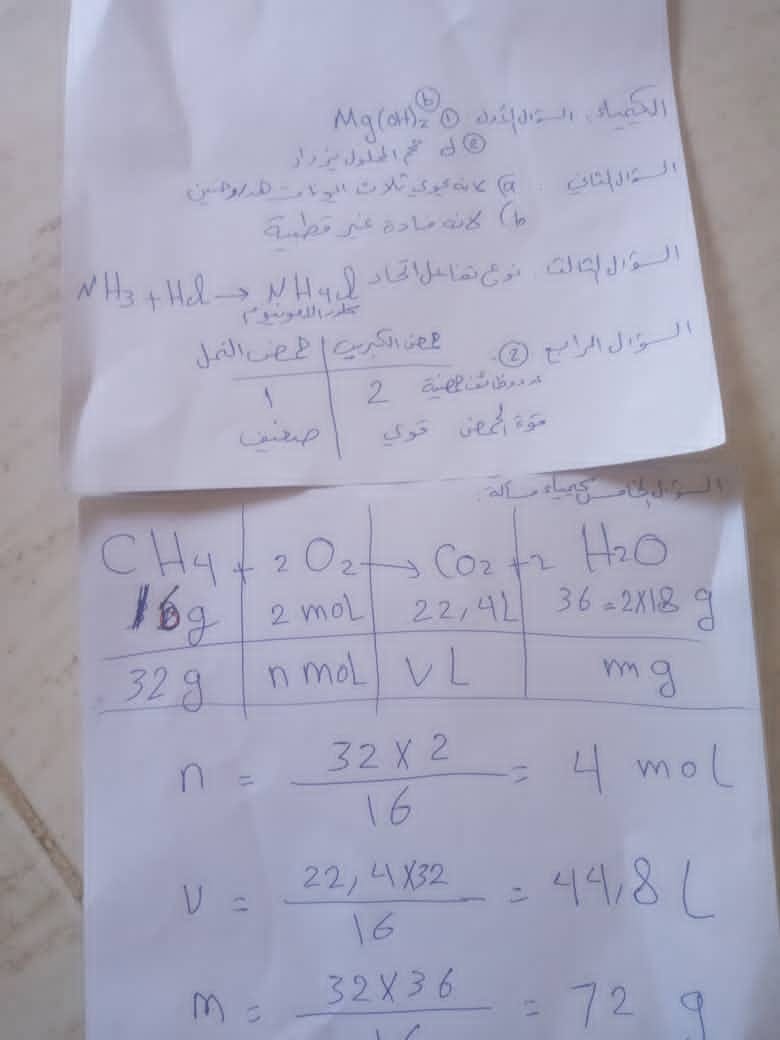 الكيمياء: السؤال الأول ① Mg(OH)₂ ⓑ
② d حجم المحلول يزداد
السؤال الثاني: a) لأنه يحوي ثلاث هدروجين
b) لأنه مادة غير قطبية
السؤال الثالث: نوع تفاعل اتحاد NH3 + HCl → NH4Cl
كلوريد الأمونيوم
السؤال الرابع ②. حمض الكبريت حمض النمل
وظائف حمضية 2 1
قوة الحمض قوي ضعيف
السؤال الخامس كيمياء مسألة:
CH4 + 2 O2 → CO2 + 2 H2O
16g 2 mol 22,4L 36 = 2X18 g
32 g n mol V L m g
n = 32 X 2 / 16 = 4 mol
V = 22,4X32 / 16 = 44,8 L
m = 32 X 36 / 16 = 72 g